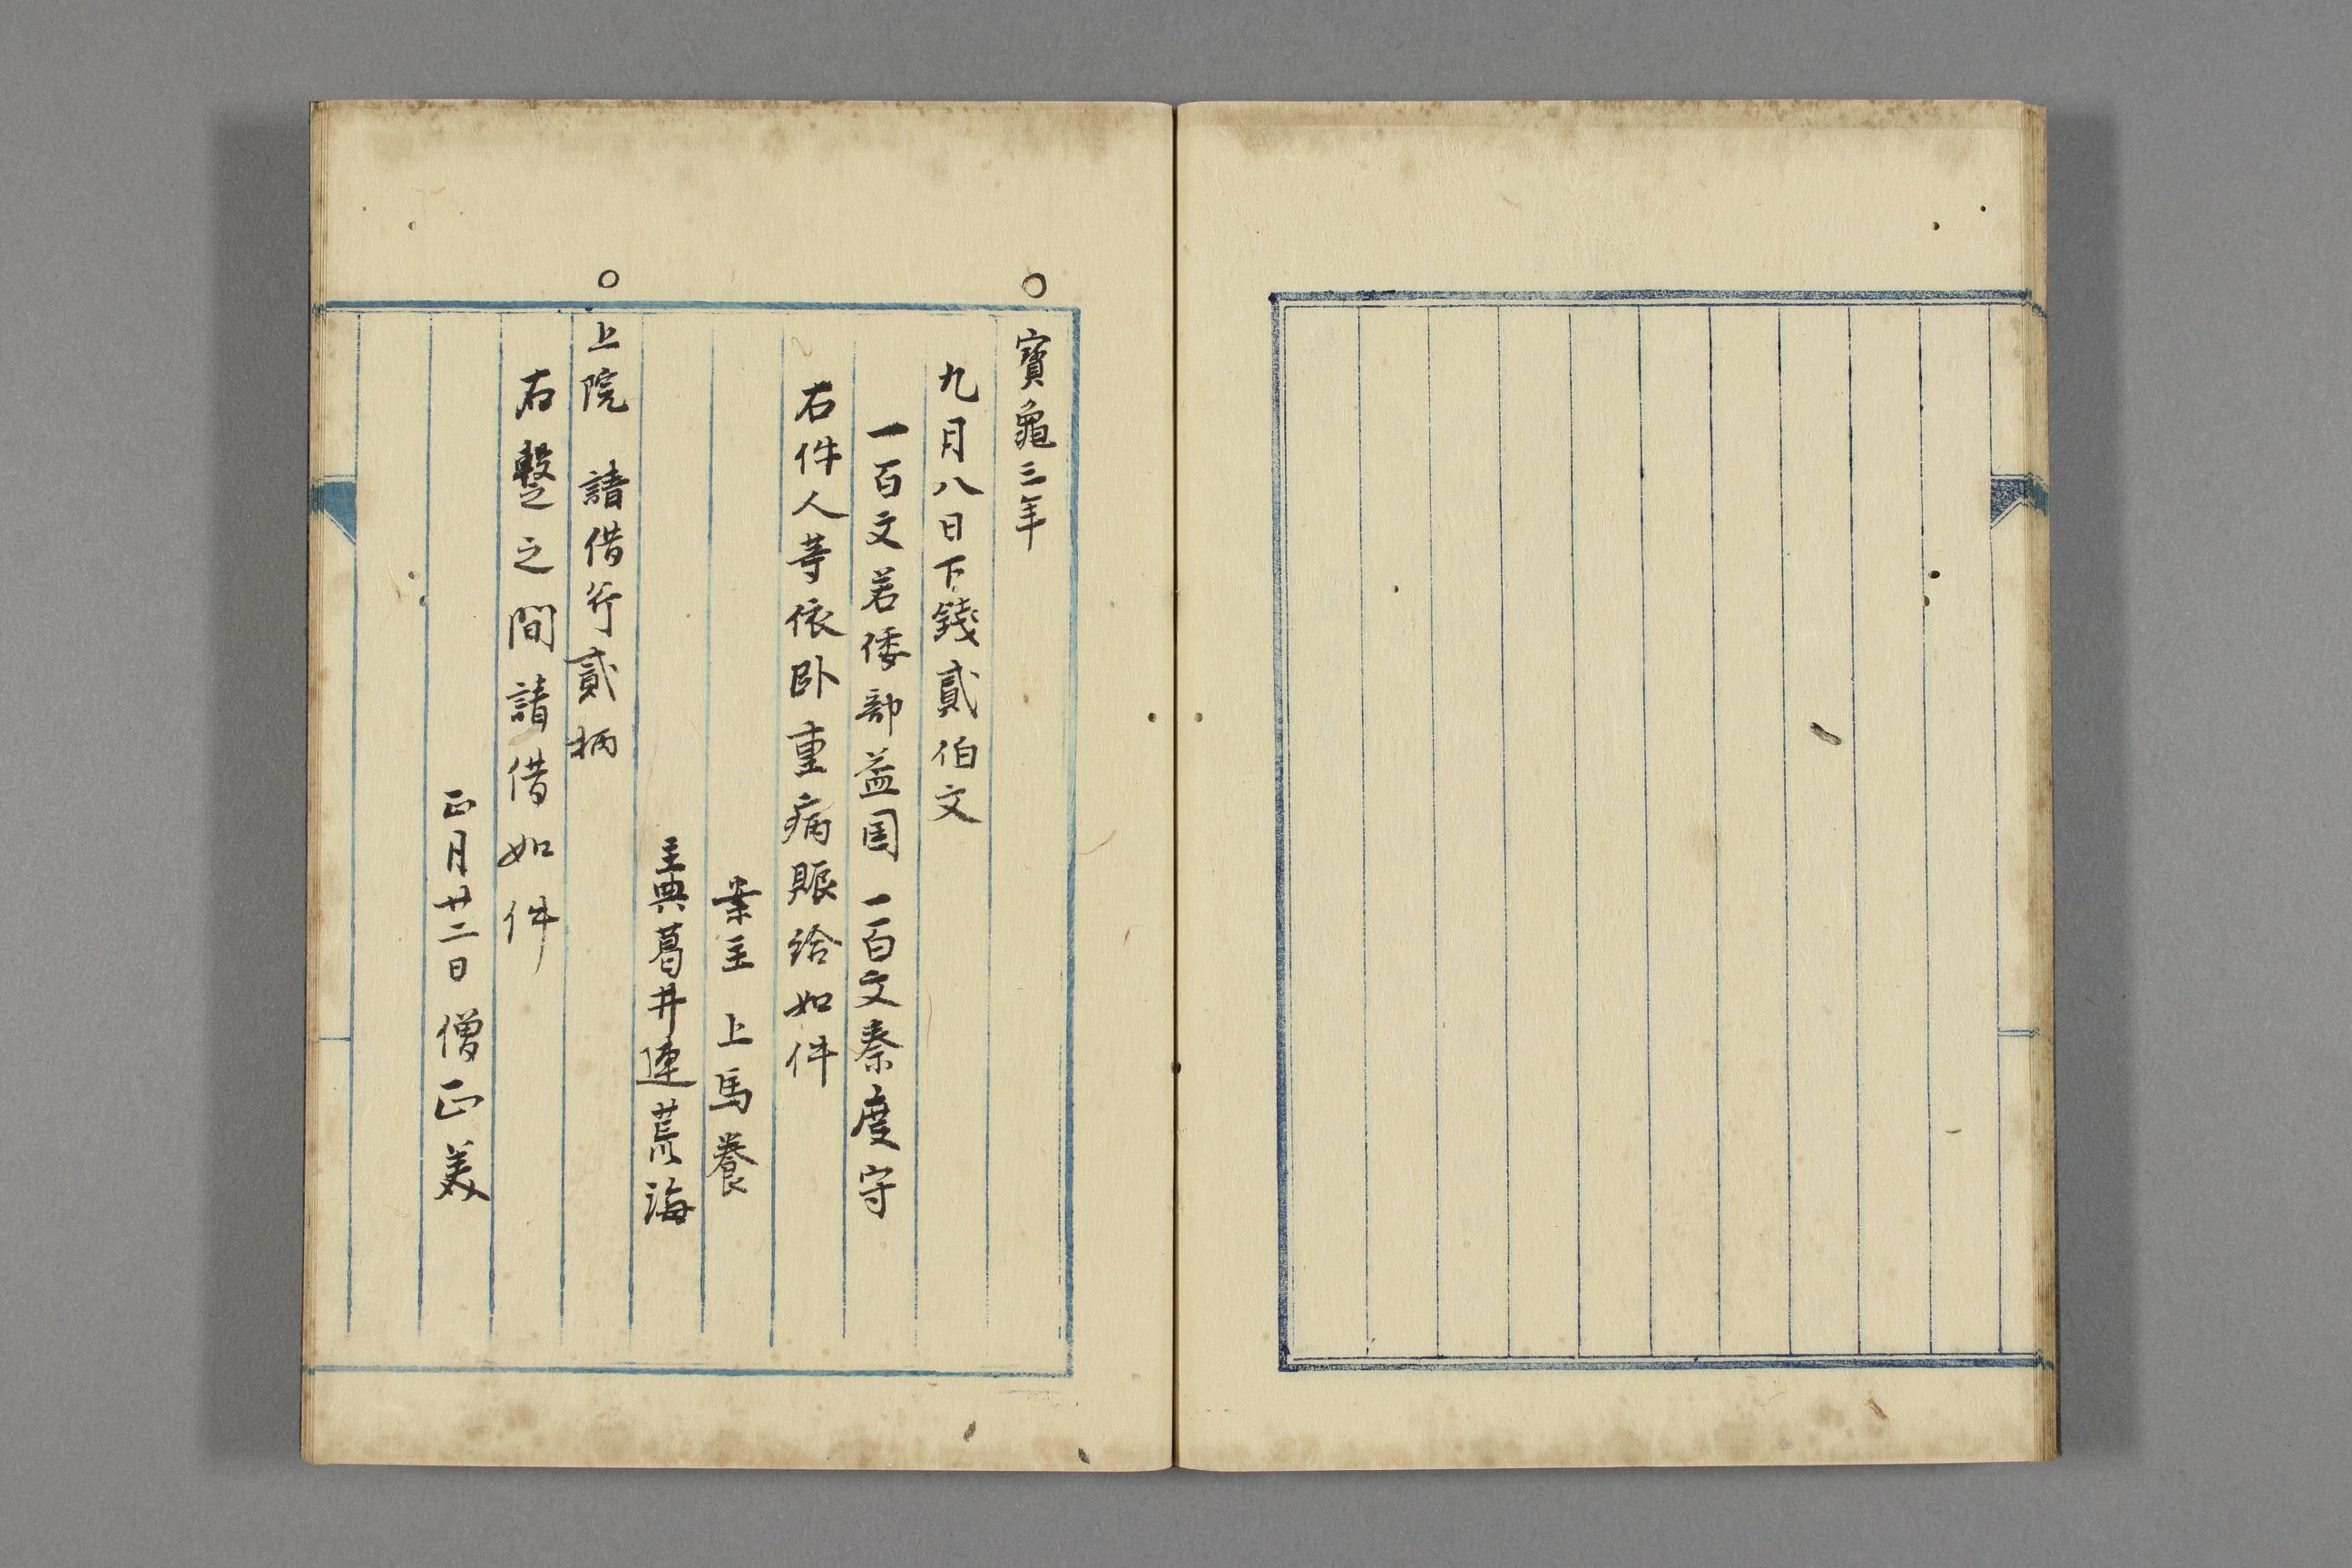 ○寳龜三年
九月八日下錢貳伯文
一百文若倭部益国 一百文秦度守
右件人等依卧重病賑給如件
案主 上馬養
主典葛井連荒海
○上院 請借行貳柄
右 之間請借如件
正月廿二日 僧正美